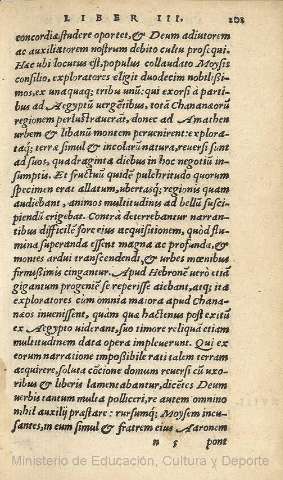 LIBER III. 101
concordię studere oportet, & Deum adiutorem
ac auxiliatorem nostrum debito cultu prosequi.
Hæc ubi locutus est, populus collaudato Moysis
consilio, exploratores eligit duodecim nobilißi-
mos, ex unaquaq; tribu unū: qui exorsi à parti-
bus ad Aegyptū uergētibus, totā Chananæorū
regionem perlustrauerāt, donec ad Amathen
urbem & libanū montem peruenirent: explora-
taq; terræ simul & incolarū natura, reuersi sunt
ad suos, quadraginta diebus in hoc negotiū in-
sumptis. Et fructuū quidē pulchritudo quorum
specimen erat allatum, ubertasq; regionis quam
audiebant, animos multitudinis ad bellū susci-
piendū erigebat. Contrà deterrebantur narran-
tibus difficilē fore eius acquisitionem, quòd flu-
mina superanda essent magna ac profunda, &
montes ardui transcendendi, & urbes mœnibus
firmißimis cingantur. Apud Hebronē uerò etiā
gigantum progeniē se reperisse aiebāt, atq; ita
exploratores cum omnia maiora apud Chana-
næos inuenissent, quàm quæ hactenus post exitū
ex Aegypto uiderant, suo timore reliquā etiam
multitudinem data opera impleuerunt. Qui ex
eorum narratione impoßibile rati talem terram
acquirere, soluta cōcione domum reuersi cū uxo-
ribus & liberis lamentabantur, dicētes Deum
uerbis tantum multa polliceri, re autem omnino
nihil auxilij præstare: rursumq; Moysem incu-
santes, in eum simul & fratrem eius Aaronem
n 5 pont
Ministerio de Educación, Cultura y Deporte